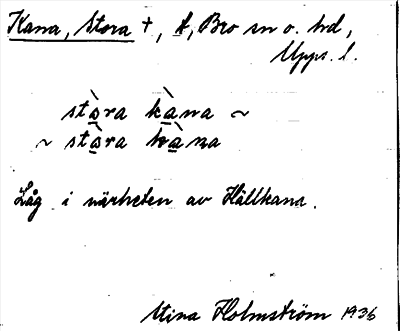 Kana, Stora †, t, Bro sn o. hd,
Upps. l.
stò̲ra kà̲na ~
~ stò̲ra kà̲na
Låg i närheten av Hällkana.
Stina Holmström 1936